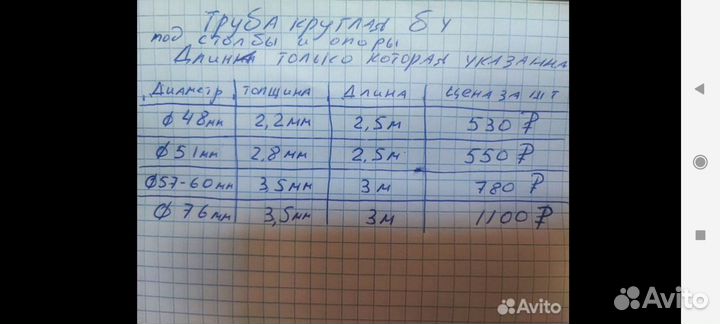 Труба круглая б у
под столбы и опоры
Длинна только которая указанна
Диаметр толщина Длина цена за шт
ϕ 48мм 2,2мм 2,5м 530 ₽
ϕ 51мм 2,8мм 2,5м 550 ₽
ϕ57-60мм 3,5мм 3м 780 ₽
ϕ 76мм 3,5мм 3м 1100 ₽
Avito
Avito